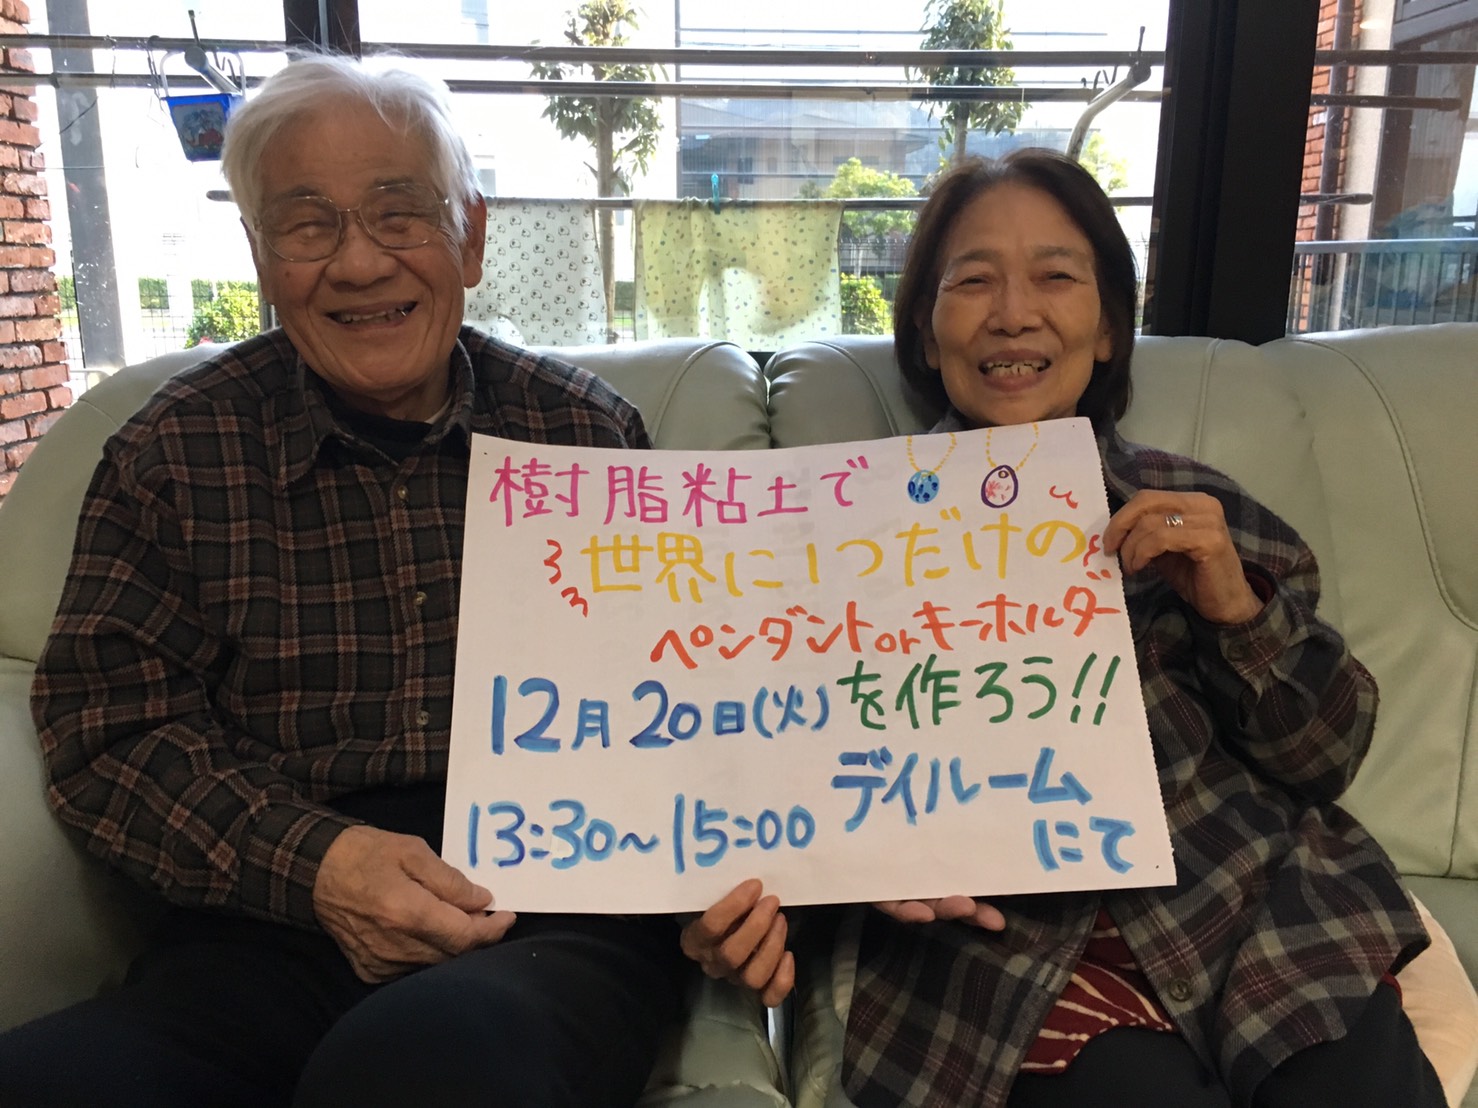 樹脂粘土で
世界に1つだけの
ペンダントorキーホルダー
を作ろう!!
12月20日(火)
13:30~15:00
デイルーム
にて